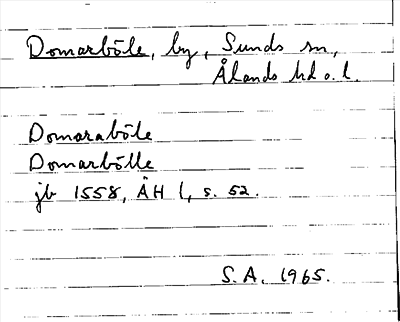 Domarböle, by, Sunds sn,
Ålands hd o. l.
Domaraböle
Domarbölle
jb 1558, ÅH 1, s. 52.
S.A. 1965.